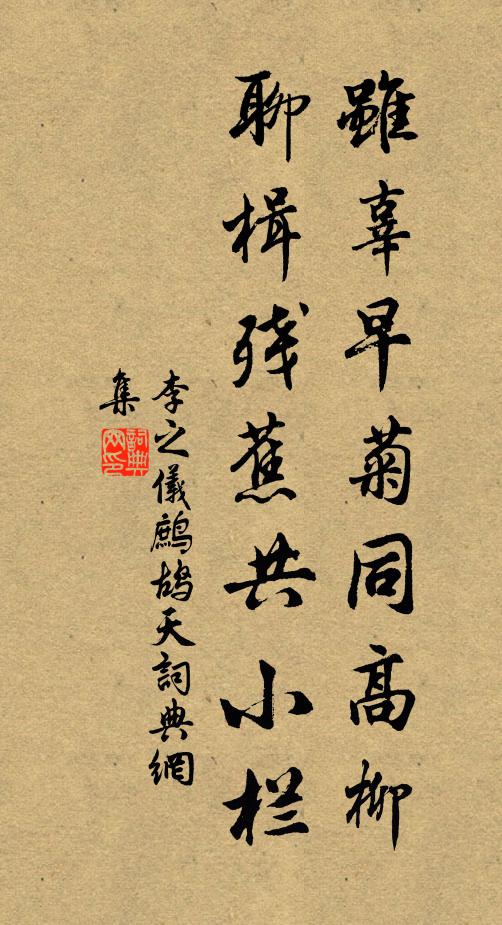 雖辜早菊同高柳
聊楫残蕉共小栏
李之儀鷓鴣天詞典網
集
詞典網印